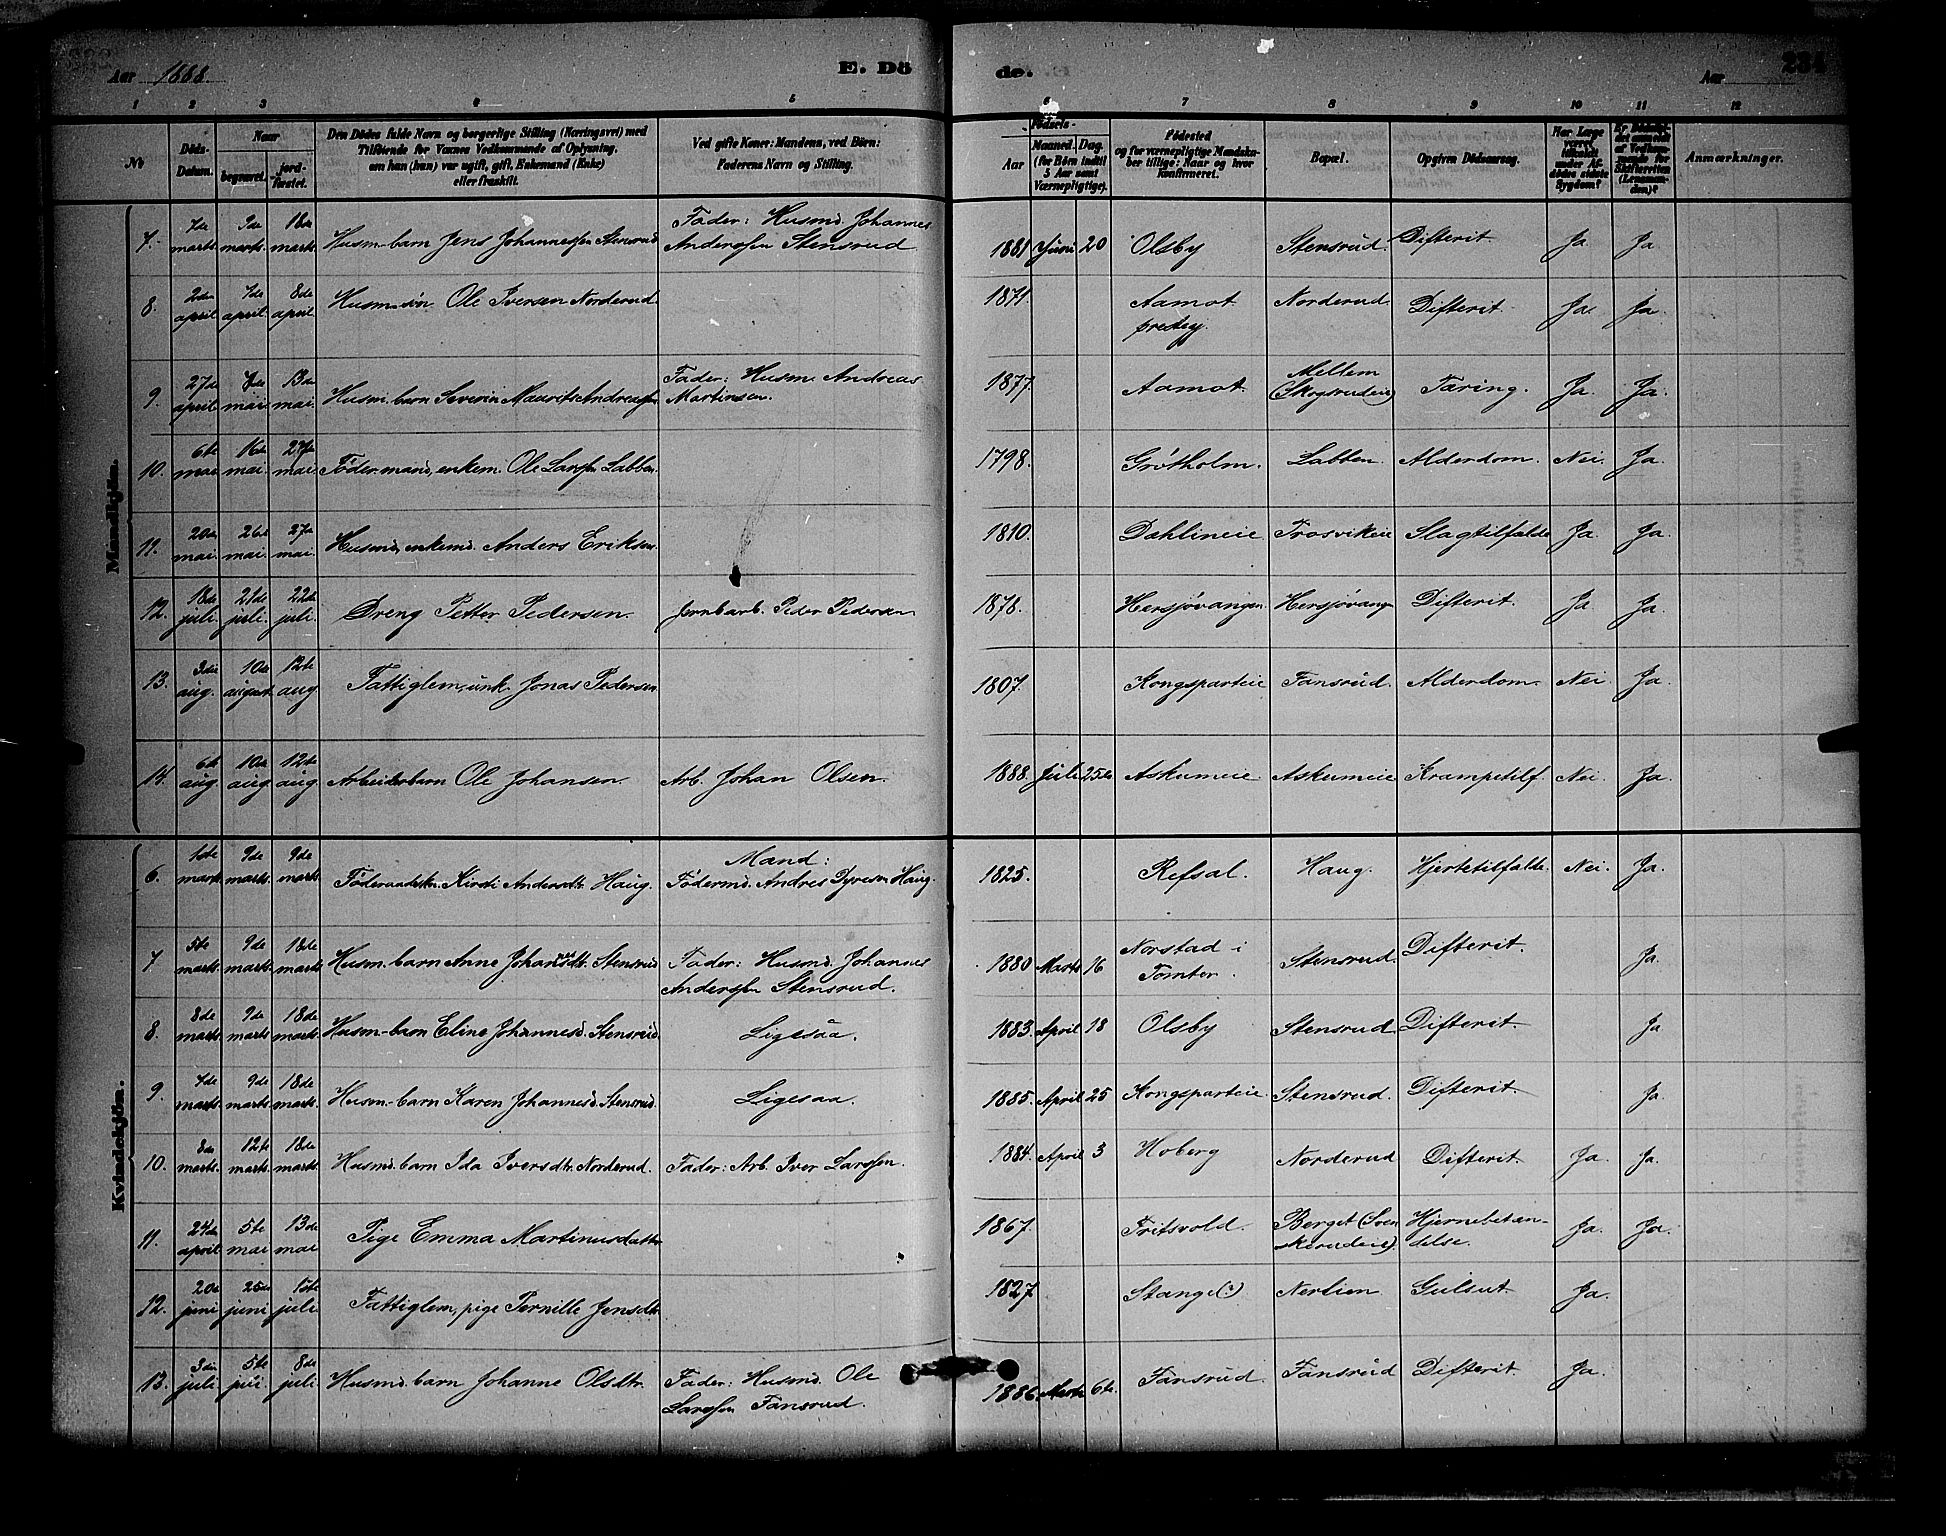 Aar 1888. E. Dö de. Aar 234
1 2 3 4 5 6 7 8 9 10 11 12
№ Döds-Datum. Naar begravet. jord-fæstet. Den Dödes fulde Navn og borgerlige Stilling (Næringsvei) med Tilföiende for Voxnes Vedkommende af Oplysning, om han (hun) var ugift, gift, Enkemand (Enke) eller fraskilt. Ved gifte Koner: Mandens, ved Börn: Faderens Navn og Stilling. Födsels- Aar Maaned. Dag. (for Börn indtil 5 Aar samt Værnepligtige). Födested og for værnepligtige Mandskaber tillige: Naar og hvor konfirmeret. Bopæl. Opgiven Dödsaarsag. Har Læge været tilkaldt under Afdödes sidste Sygdom? Anmærkninger.
Mandkjön.
7. 7de marts. 9de marts. 18de marts. Husm. barn Jens Johannessen Stensrud Fader: Husmd. Johannes Anderssen Stensrud 1881 Juni 20 Olsby Stensrud. Difterit. Ja Ja
8. 2den april 7de april. 8de april. Husm. sön Ole Iversen Norderud 1871. Aamot prestegj. Norderud Difterit. Ja. Ja.
9. 27de april. mai. 13de mai. Husm. barn Severin Maurits Andreassen Fader: Husm. Andreas Martinsen. 1877. Aamot. Mellem (Skogsrudeie) Tæring. Ja. Ja.
10. 6te mai 16de mai. 27de mai. Födermand, enkem. Ole Larssen Labben. 1798. Grötholm. Labben. Alderdom. Nei. Ja.
11. 20de mai 26de mai. 27de mai. Husmd, enkemd. Anders Eriksen. 1810. Dæhlineie Trosvikeie Slagtilfælde Ja. Ja.
12. 18de juli 21de juli. 22de juli. Dreng Petter Pedersen. Jernbarb. Peder Pedersen 1878. Hersjövangen Hersjövangen Difterit. Ja Ja.
13. 3die aug. 10de august. 12te aug. Fattiglem, unk. Jonas Pedersen 1807. Kongsparteie Fansrud. Alderdom. Nei Ja.
14. 6te aug. 10de aug. 12te aug. Arbeiderbarn Ole Johansen. Arb. Johan Olsen. 1888. Juli 25de Askumeie Askumeie Krampetilf. Nei. Ja.
Kvindekjön.
6. 1ste marts 9de marts. 9de marts. Föderaadsk. Kirsti Andersdtr. Haug. Mand: Födermd. Andres Tyresen Haug. 1825. Refsal. Haug. Hjertetilfælde. Nei. Ja.
7 5te marts. 9de marts. 18de marts. Husm. barn Anne Johannesdtr. Stensrud Fader: Husmd. Johannes Anderssen Stensrud. 1880 Marts 16 Norstad i Tomter. Stensrud. Difterit. Ja.
8. 8de marts. 9de marts. 18de marts. Husm-barn Eline Johannesd. Stensrud. Ligesaa. 1883. April 18 Olsby Stensrud Difterit. Ja
9. 7de marts. 9de marts. 18de marts. Husm-barn Karen Johannesd. Stensrud. Ligesaa. 1885. April 25 Kongsparteie Stensrud. Difterit. Ja.
10. 8de marts. 12te marts. 18de marts. Husmd. barn Ida Iversdtr. Norderud. Fader: Arb. Iver Larssen. 1884. April 3 Hoberg Norderud Difterit. Ja. Ja.
11. 24de april 5te mai 13de mai Pige Emma Martinusdatter 1867. Fritsvold. Berget (Svenskerudeie) Hjernebetændelse. Ja. Ja.
12. 20de juni 25de juni 15te juli. Fattiglem, pige Pernille Jensdtr. 1827. Stange (?) Nerlien Gulsut. Ja.
13. 3die juli 5te juli 8de juli. Husmd. barn Johanne Olsdtr. Fader: Husmd. Ole Larssen Fansrud. 1886 Marts 6te. Fansrud. Fansrud Difterit. Ja.